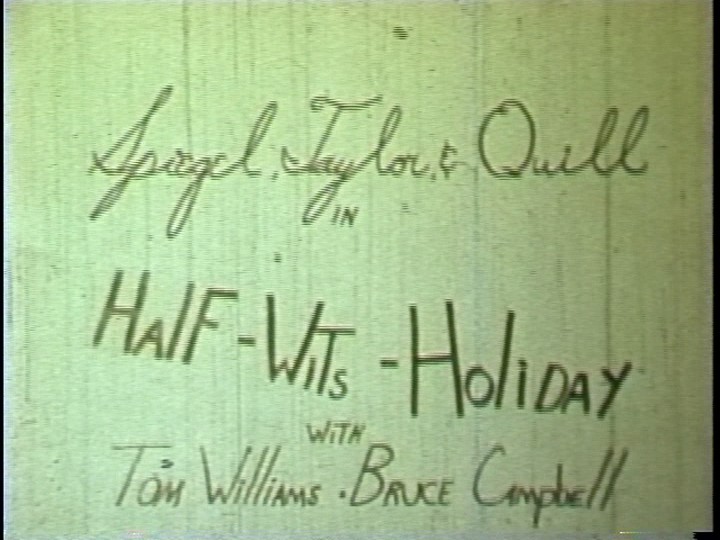 Spiegel, Taylor, & Quill
IN
HAlF-WiTs-HoliDAY
WiTH
Tom Williams . BRUCE Campbell